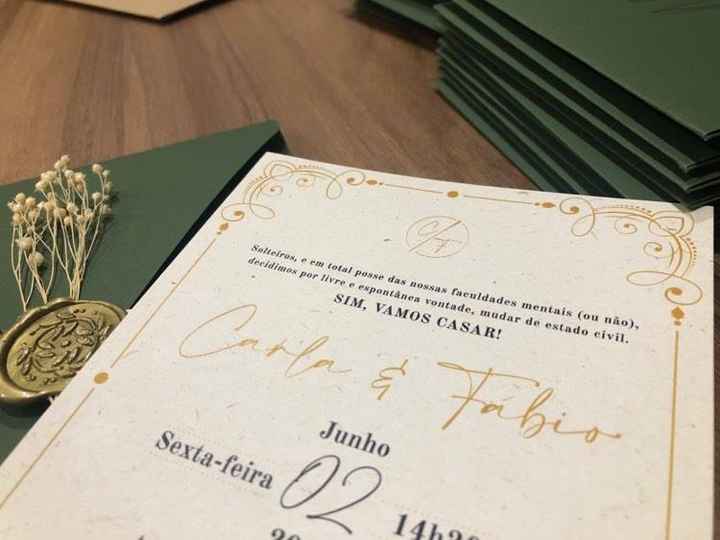 C/F
Solteiros, e em total posse das nossas faculdades mentais (ou não),
decidimos por livre e espontânea vontade, mudar de estado civil.
SIM, VAMOS CASAR!
Carla & Fábio
Junho
Sexta-feira 02